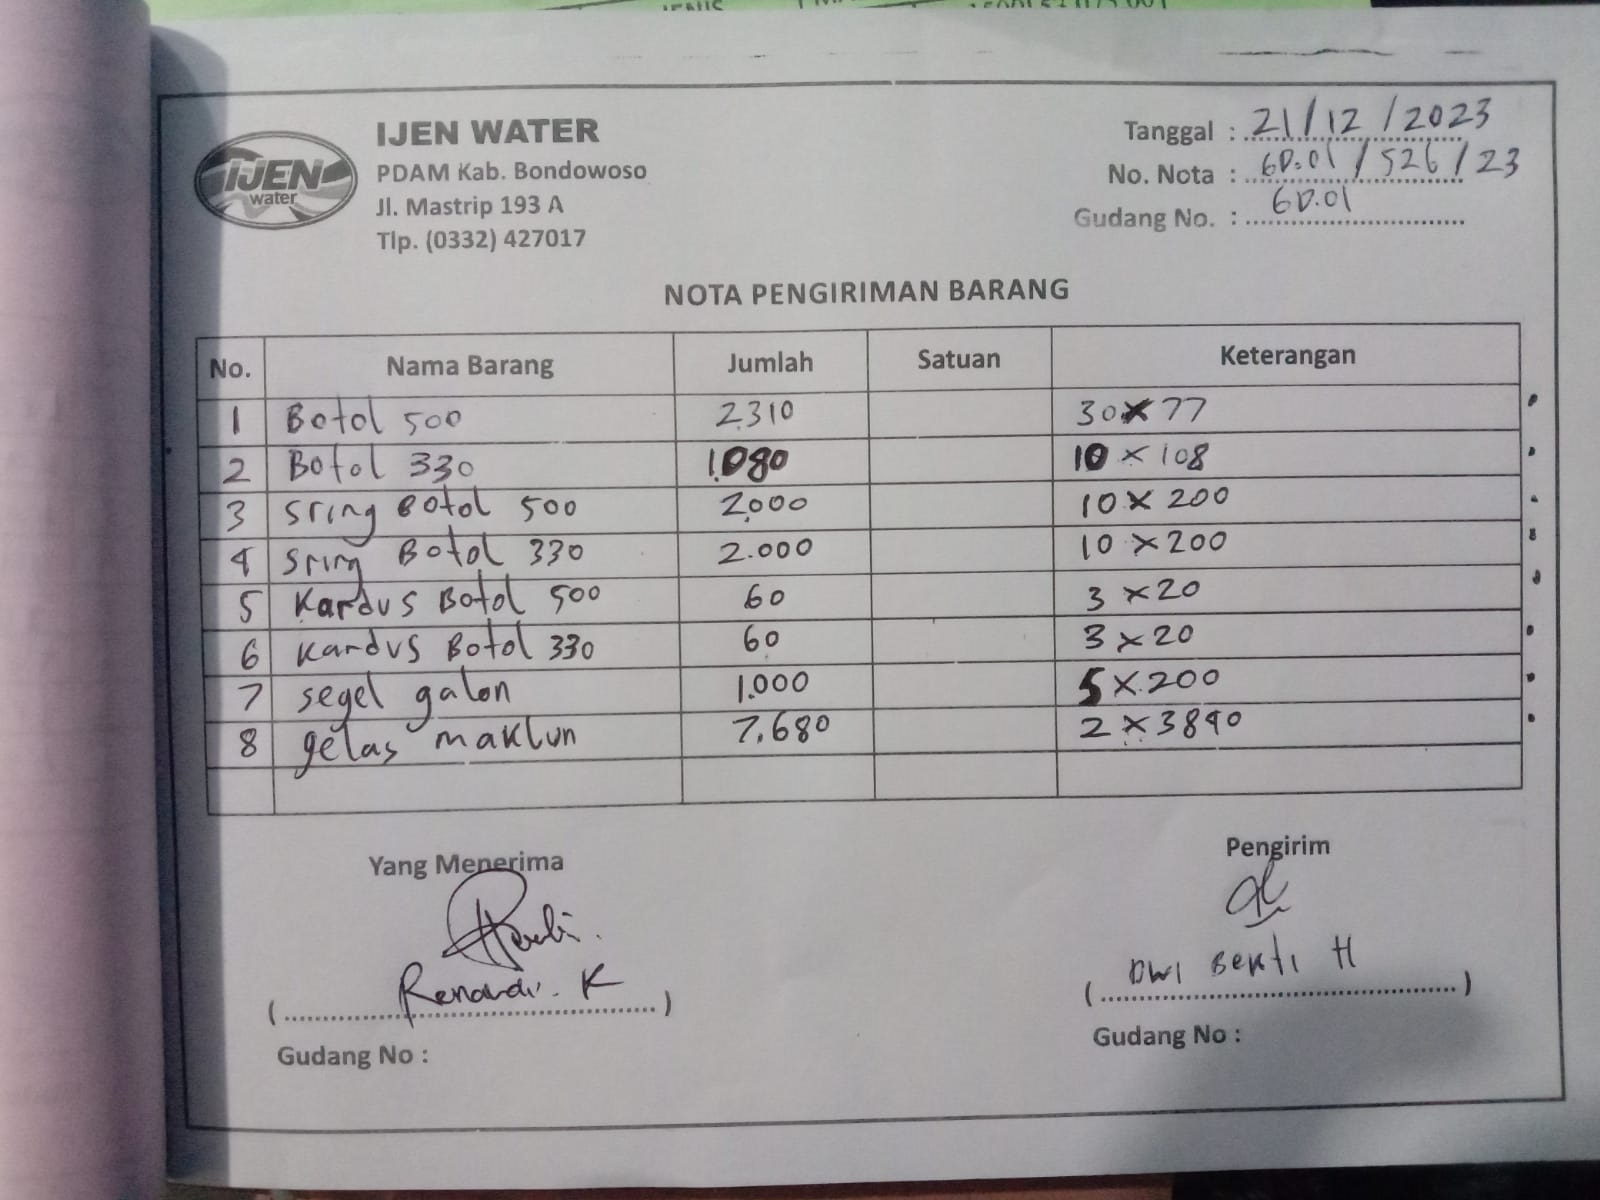 IJEN
water
IJEN WATER
PDAM Kab. Bondowoso
Jl. Mastrip 193 A
Tlp. (0332) 427017
Tanggal : 21/12/2023
No. Nota : GD.01/526/23
Gudang No. : GD.01
NOTA PENGIRIMAN BARANG
No. Nama Barang Jumlah Satuan Keterangan
1 Botol 500 2.310 30 x 77
2 Botol 330 1.080 10 x 108
3 Sring Botol 500 2.000 10 x 200
4 Sring Botol 330 2.000 10 x 200
5 Kardus Botol 500 60 3 x 20
6 Kardus Botol 330 60 3 x 20
7 segel galon 1.000 5 x 200
8 gelas maklun 7.680 2 x 3840
Yang Menerima Pengirim
( Renandi. K ) ( DWI BEKTI H )
Gudang No : Gudang No :